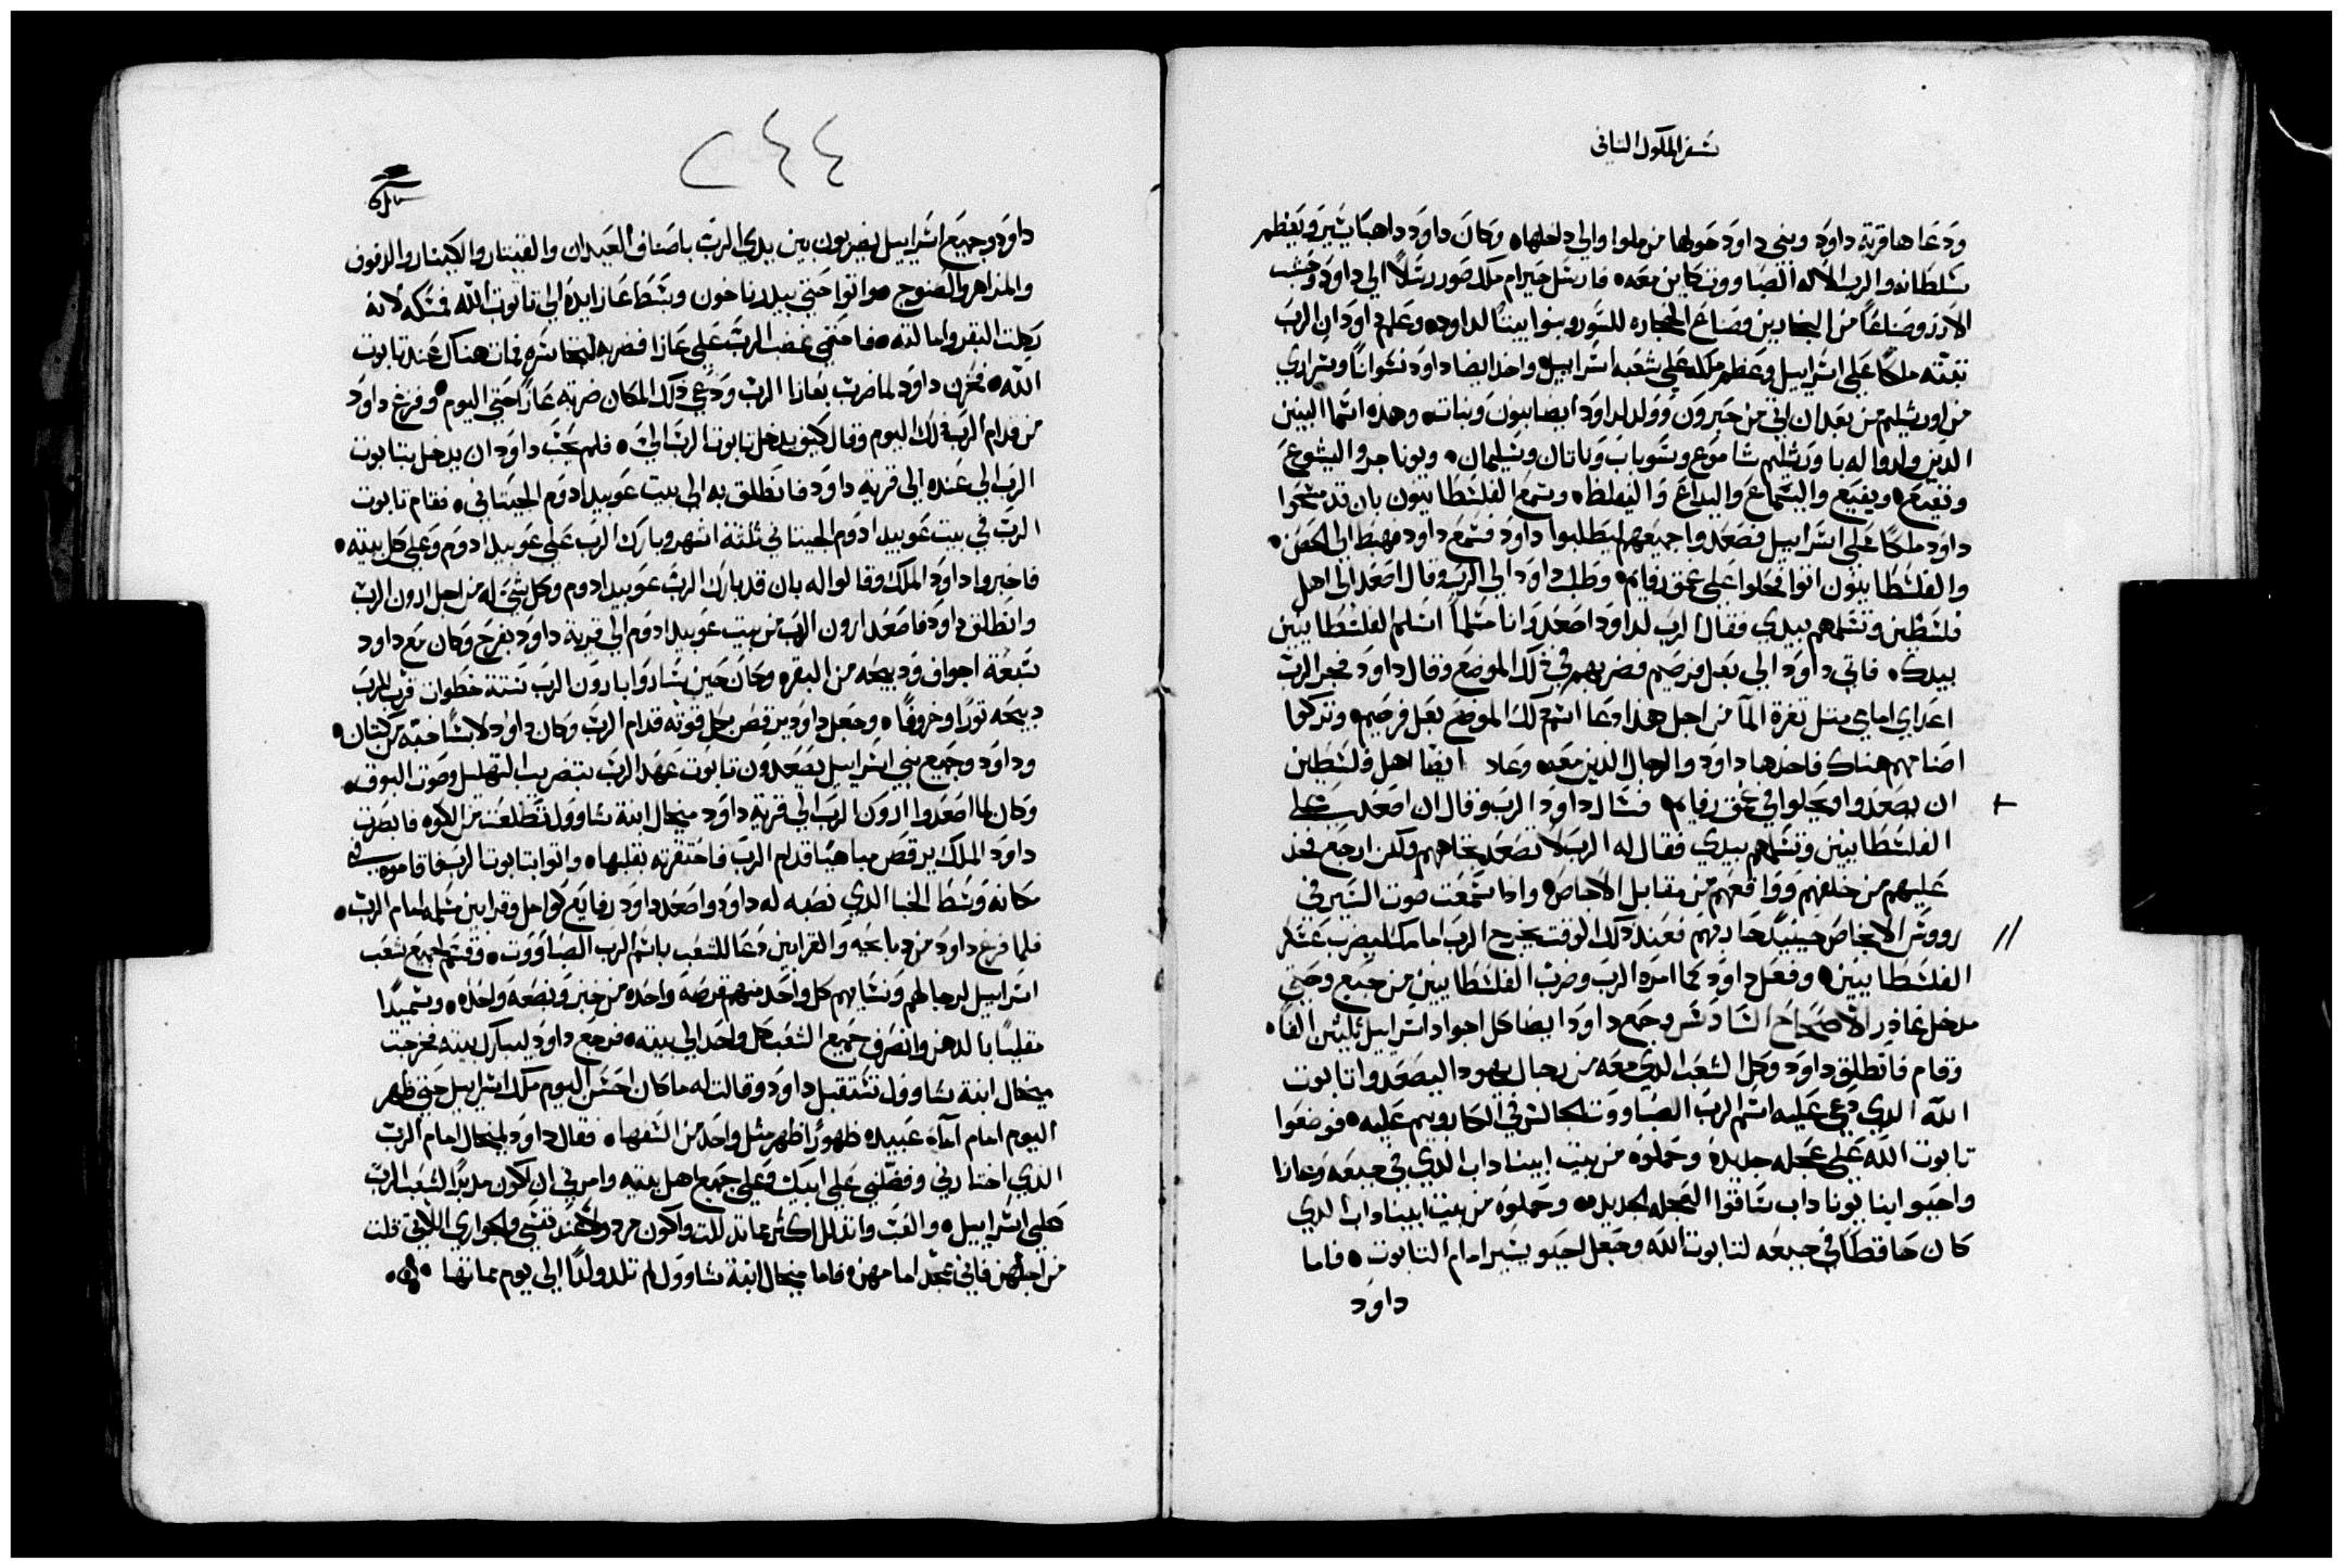 سفر الملوك الثانى
ودعاها قرية داود وبنى داود حولها من ملوا والي داخلها ٥ وكان داود داهبًا يسير ويعظم
سلطانه والرب الاله الصاووت كاين معه ٥ فارسل حيرام ملك صور رسلًا الي داود وخشب
الارز وصناعًا من النجارين وصناع الحجاره للسور وبنوا بيتًا لداود ٥ وعلم داود ان الرب
ثبته ملكًا علي اسراييل وعظم ملكه علي شعبه اسراييل ٥ واخد ايضا داود نسوانًا وسراري
من اورشليم من بعد ان اتي من حبرون وولد لداود ايضا بنون وبنات ٥ وهذه اسما البنين
الدين ولدوا له باورشليم شاموع وسوباب وناتان وسليمان ٥ ويوناحر واليشوع
ونفيع ٥ ويفيع واليسماع واليداع واليفلط ٥ وسمع الفلسطانيون بان قد مسحوا
داود ملكًا علي اسراييل فصعدوا جميعهم ليطلبوا داود فسمع داود فهبط الي الحصن ٥
والفلسطانيون اتوا فحلوا علي عمق رفايم ٥ وطلب داود الي الرب وقال اصعد الي اهل
فلسطين وتسلمهم بيدي فقال الرب لداود اصعد وانا مسلمًا اسلم الفلسطانيين
بيدك ٥ فاتي داود الي بعل فرصيم فضربهم في دلك الموضع وقال داود فجر الرب
اعداي امامي مثل ثغرة الما من اجل هذا دعا اسم دلك الموضع بعل فرصيم ٥ وتركوا
اصنامهم هناك فاخدها داود والرجال الذين معه ٥ وعاد ايضًا اهل فلسطين
ان يصعدوا ويحلوا في عمق رفايم ٥ فسال داود الرب وقال ان اصعد علي
الفلسطانيين وتسلمهم بيدي فقال له الرب لا تصعد تجاههم ولكن ارجع فخد
عليهم من خلفهم وواقعهم من مقابل الاجاص ٥ وادا سمعت صوت السير في
رووس الاجاص حينيد حاربهم فعند دلك الوقت يخرج الرب امامك ليضرب عسكر
الفلسطانيين ٥ وفعل داود كما امره الرب وضرب الفلسطانيين من جبع وحتي
مدخل غاذر الاصحاح السادس وجمع داود ايضا كل اجواد اسراييل ثلثين الفًا ٥
وقام فانطلق داود وكل الشعب الدي معه من رجال يهودا ليصعدوا تابوت
الله الدي دعي عليه اسم الرب الصاووت الجالس في الكاروبيم عليه ٥ فوضعوا
تابوت الله علي عجله جديده وحملوه من بيت ابيناداب الدي في جبعه وعازا
واحيو ابنا يوناداب ساقوا العجله الجديده ٥ وحملوه من بيت ابيناداب الدي
كان حافظًا في جبعه لتابوت الله وجعل احيو يسير امام التابوت ٥ فاما
داود
٢٤٤
داود وجميع اسراييل يضربون بين يدي الرب باصناف العيدان والقيثار والكينار والدفوف
والمزاهر والصنوج ٥ واتوا حتي بيدر ناخون وبسط عازا يده الي تابوت الله فمسكه لانه
رحلت البقر وامالته ٥ فاحتمي غضب الرب علي عازا فضربه لتجاسره فمات هناك عند تابوت
الله ٥ فحزن داود لما ضرب بعازا الرب ودعي دلك المكان ضربة عازا حتي اليوم ٥ وفزع داود
من قدام الرب دلك اليوم وقال كيف يدخل تابوت الرب الي ٥ فلم يحب داود ان يدخل بتابوت
الرب الي عنده الي قرية داود فانطلق به الي بيت عوبيد ادوم الجيتاني ٥ فقام تابوت
الرب في بيت عوبيد ادوم الجيتاني ثلثة اشهر وبارك الرب علي عوبيد ادوم وعلي كل بيته ٥
فاخبروا داود الملك وقالوا له بان قد بارك الرب عوبيد ادوم وكل شي له من اجل ارون الرب
وانطلق داود فاصعد ارون الرب من بيت عوبيد ادوم الي قرية داود بفرح وكان مع داود
سبعة اجواق ودبيحه من البقره وكان حين ساروا بارون الرب ستة خطوات قرب للرب
دبيحه ثورًا وخروفًا ٥ وجعل داود يرقص بكل قوته قدام الرب وكان داود لابسًا جبة من كتان ٥
وداود وجميع بني اسراييل يصعدون تابوت عهد الرب بتضريب التهليل وصوت البوق ٥
وكان لما اصعدوا ارون الرب الي قرية داود ميخال ابنة شاوول تطلعت من الكوه فابصرت
داود الملك يرقص مباهيًا قدام الرب فاحتقرته بقلبها ٥ واتوا بتابوت الرب فاقاموه في
مكانه وسط الخبا الدي نصبه له داود واصعد داود رفايع كوامل وقرابين سلمه امام الرب ٥
فلما فرغ داود من دبايحه والقرابين دعا للشعب باسم الرب الصاووت ٥ وقسم لجميع شعب
اسراييل لرجالهم ونسايهم كل واحد منهم قرصة واحده من خبز وبضعه واحده ٥ وسميدًا
مقليًا بالدهن وانصرف جميع الشعب كل واحد الي بيته ٥ فرجع داود ليبارك بيته فخرجت
ميخال ابنة شاوول تستقبل داود وقالت له ما كان احسن اليوم ملك اسراييل حتي ظهر
اليوم امام امآه عبيده ظهورًا ظهر مثل واحد من السفها ٥ فقال داود لميخال امام الرب
الدي اختارني وفضلني علي ابيك وعلي جميع اهل بيته وامرني ان اكون مدبرًا لشعب الرب
علي اسراييل ٥ والعب واتدلل اكثر مما تدللت واكون مردول عند نفسي والجواري اللاتي قلت
من اجلهن فاني عجد امامهن ٥ فاما ميخال ابنة شاوول لم تلد ولدًا الي يوم مماتها ٥